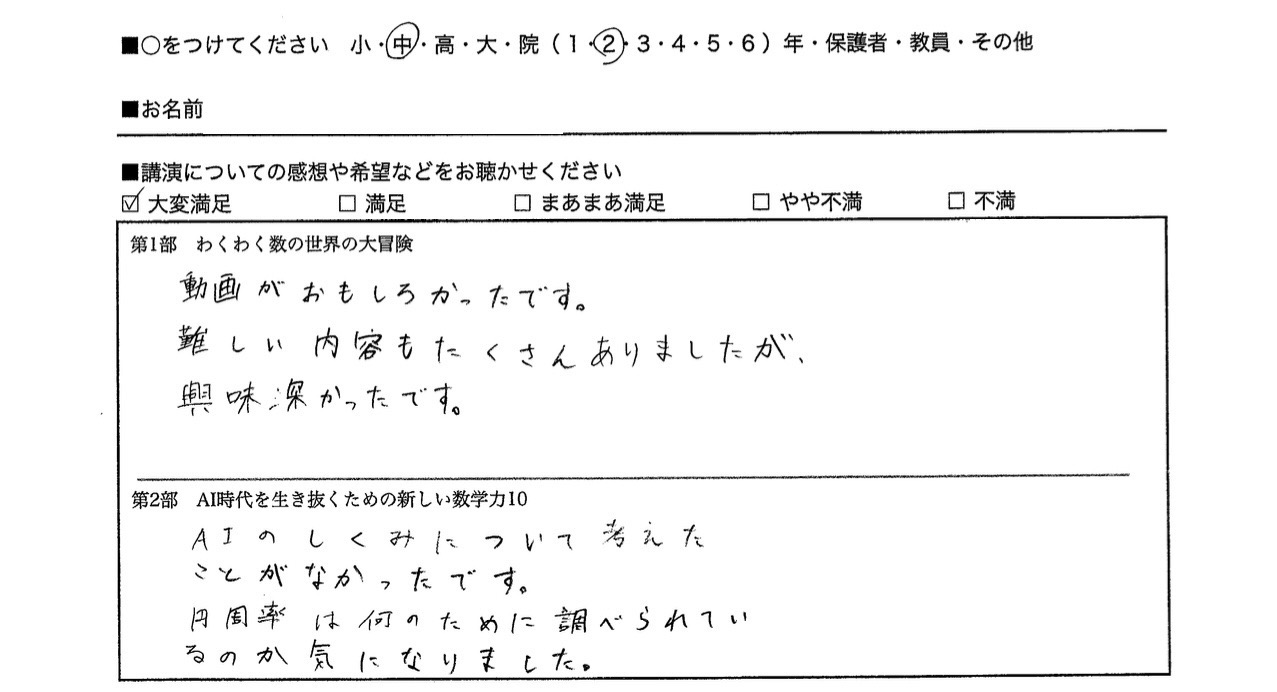 ■○をつけてください 小・中・高・大・院（1・2・3・4・5・6）年・保護者・教員・その他
■お名前
■講演についての感想や希望などをお聴かせください
☑ 大変満足 □ 満足 □ まあまあ満足 □ やや不満 □ 不満
第1部 わくわく数の世界の大冒険
動画がおもしろかったです。
難しい内容もたくさんありましたが、
興味深かったです。
第2部 AI時代を生き抜くための新しい数学力10
AIのしくみについて考えた
ことがなかったです。
円周率は何のために調べられてい
るのか気になりました。